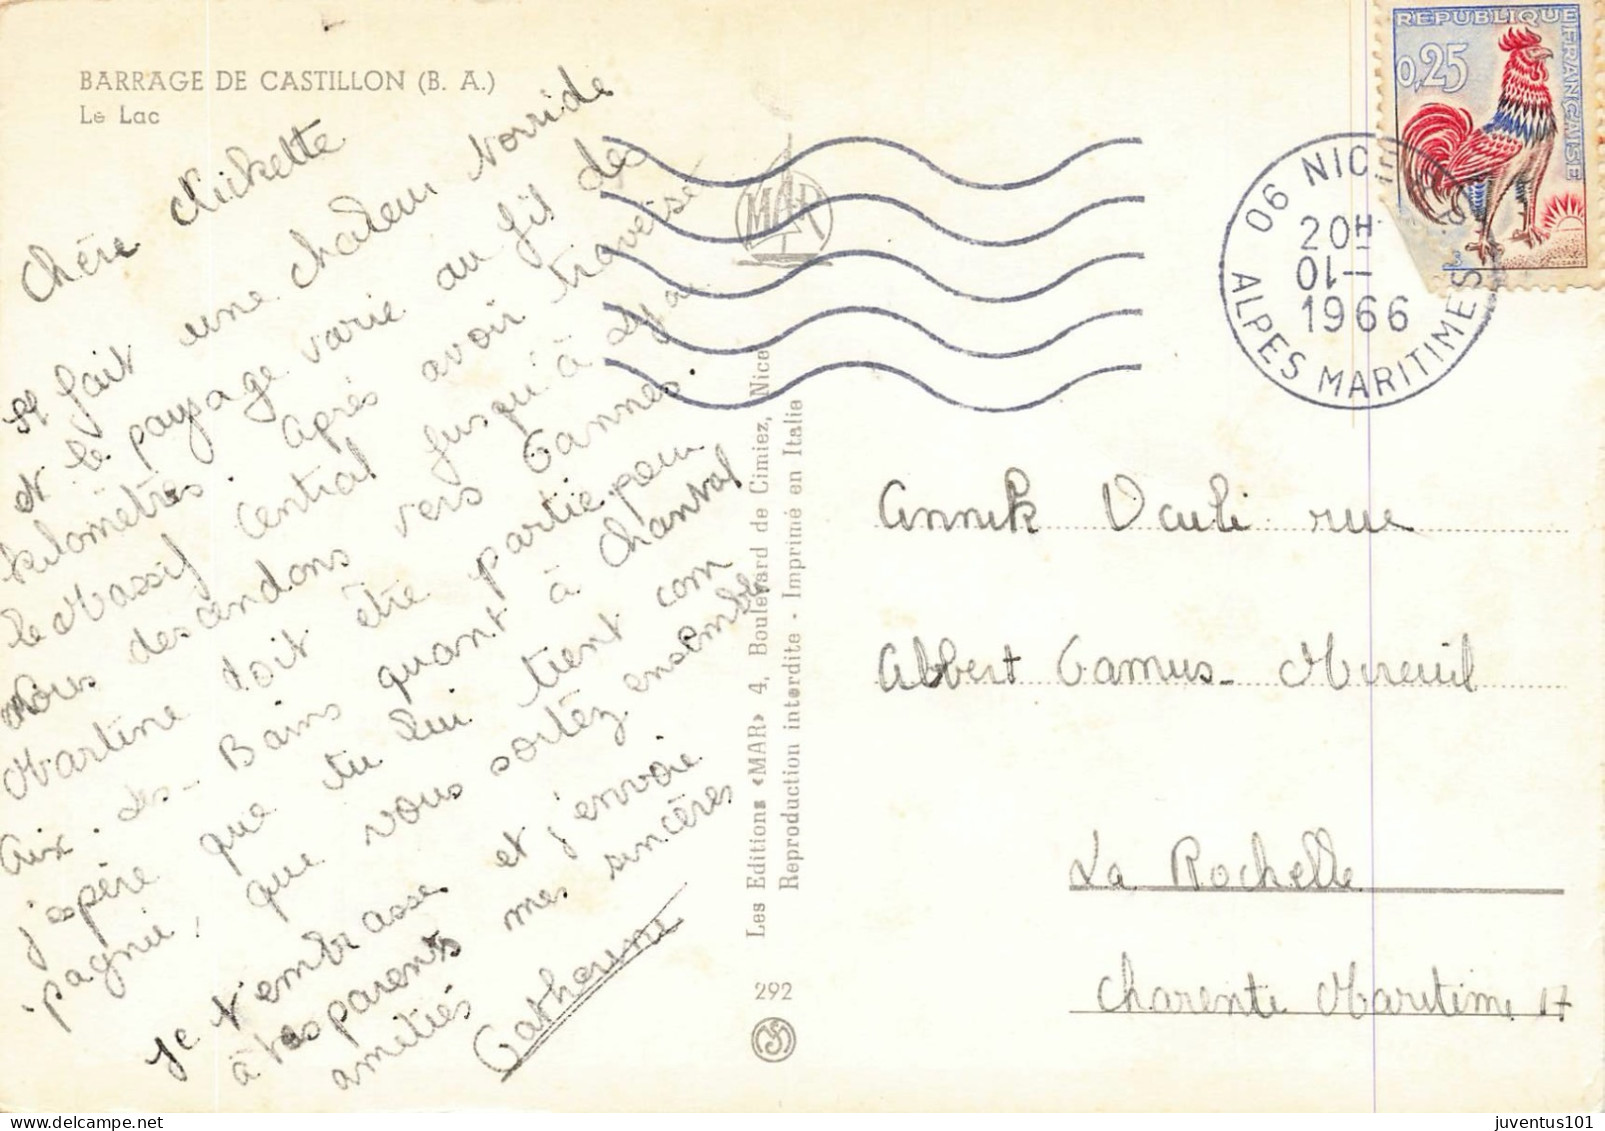 BARRAGE DE CASTILLON (B. A.)
Le Lac
Chère Nikette
Il fait une chaleur torride
et le paysage varie au fil des
kilomètres. Après avoir traversé
le Massif Central jusqu'à Lyon
Nous descendons vers Cannes.
Martine doit être partie pour
Aix-les-Bains quant à Chantal
j'espère que tu lui tient com
pagnie, que vous sortez ensemble
Je t'embrasse et j'envoie
à tes parents mes sincères
amitiés
Catherine
Les Editions «MAR» 4, Boulevard de Cimiez, Nice
Reproduction interdite - Imprimé en Italie
292
MAR
REPUBLIQUE FRANÇAISE
0,25
06 NICE R.P.
20H
01-
1966
ALPES MARITIMES
Annik rue
Albert Camus - Mireuil
La Rochelle
Charente Maritime 17
juventus101